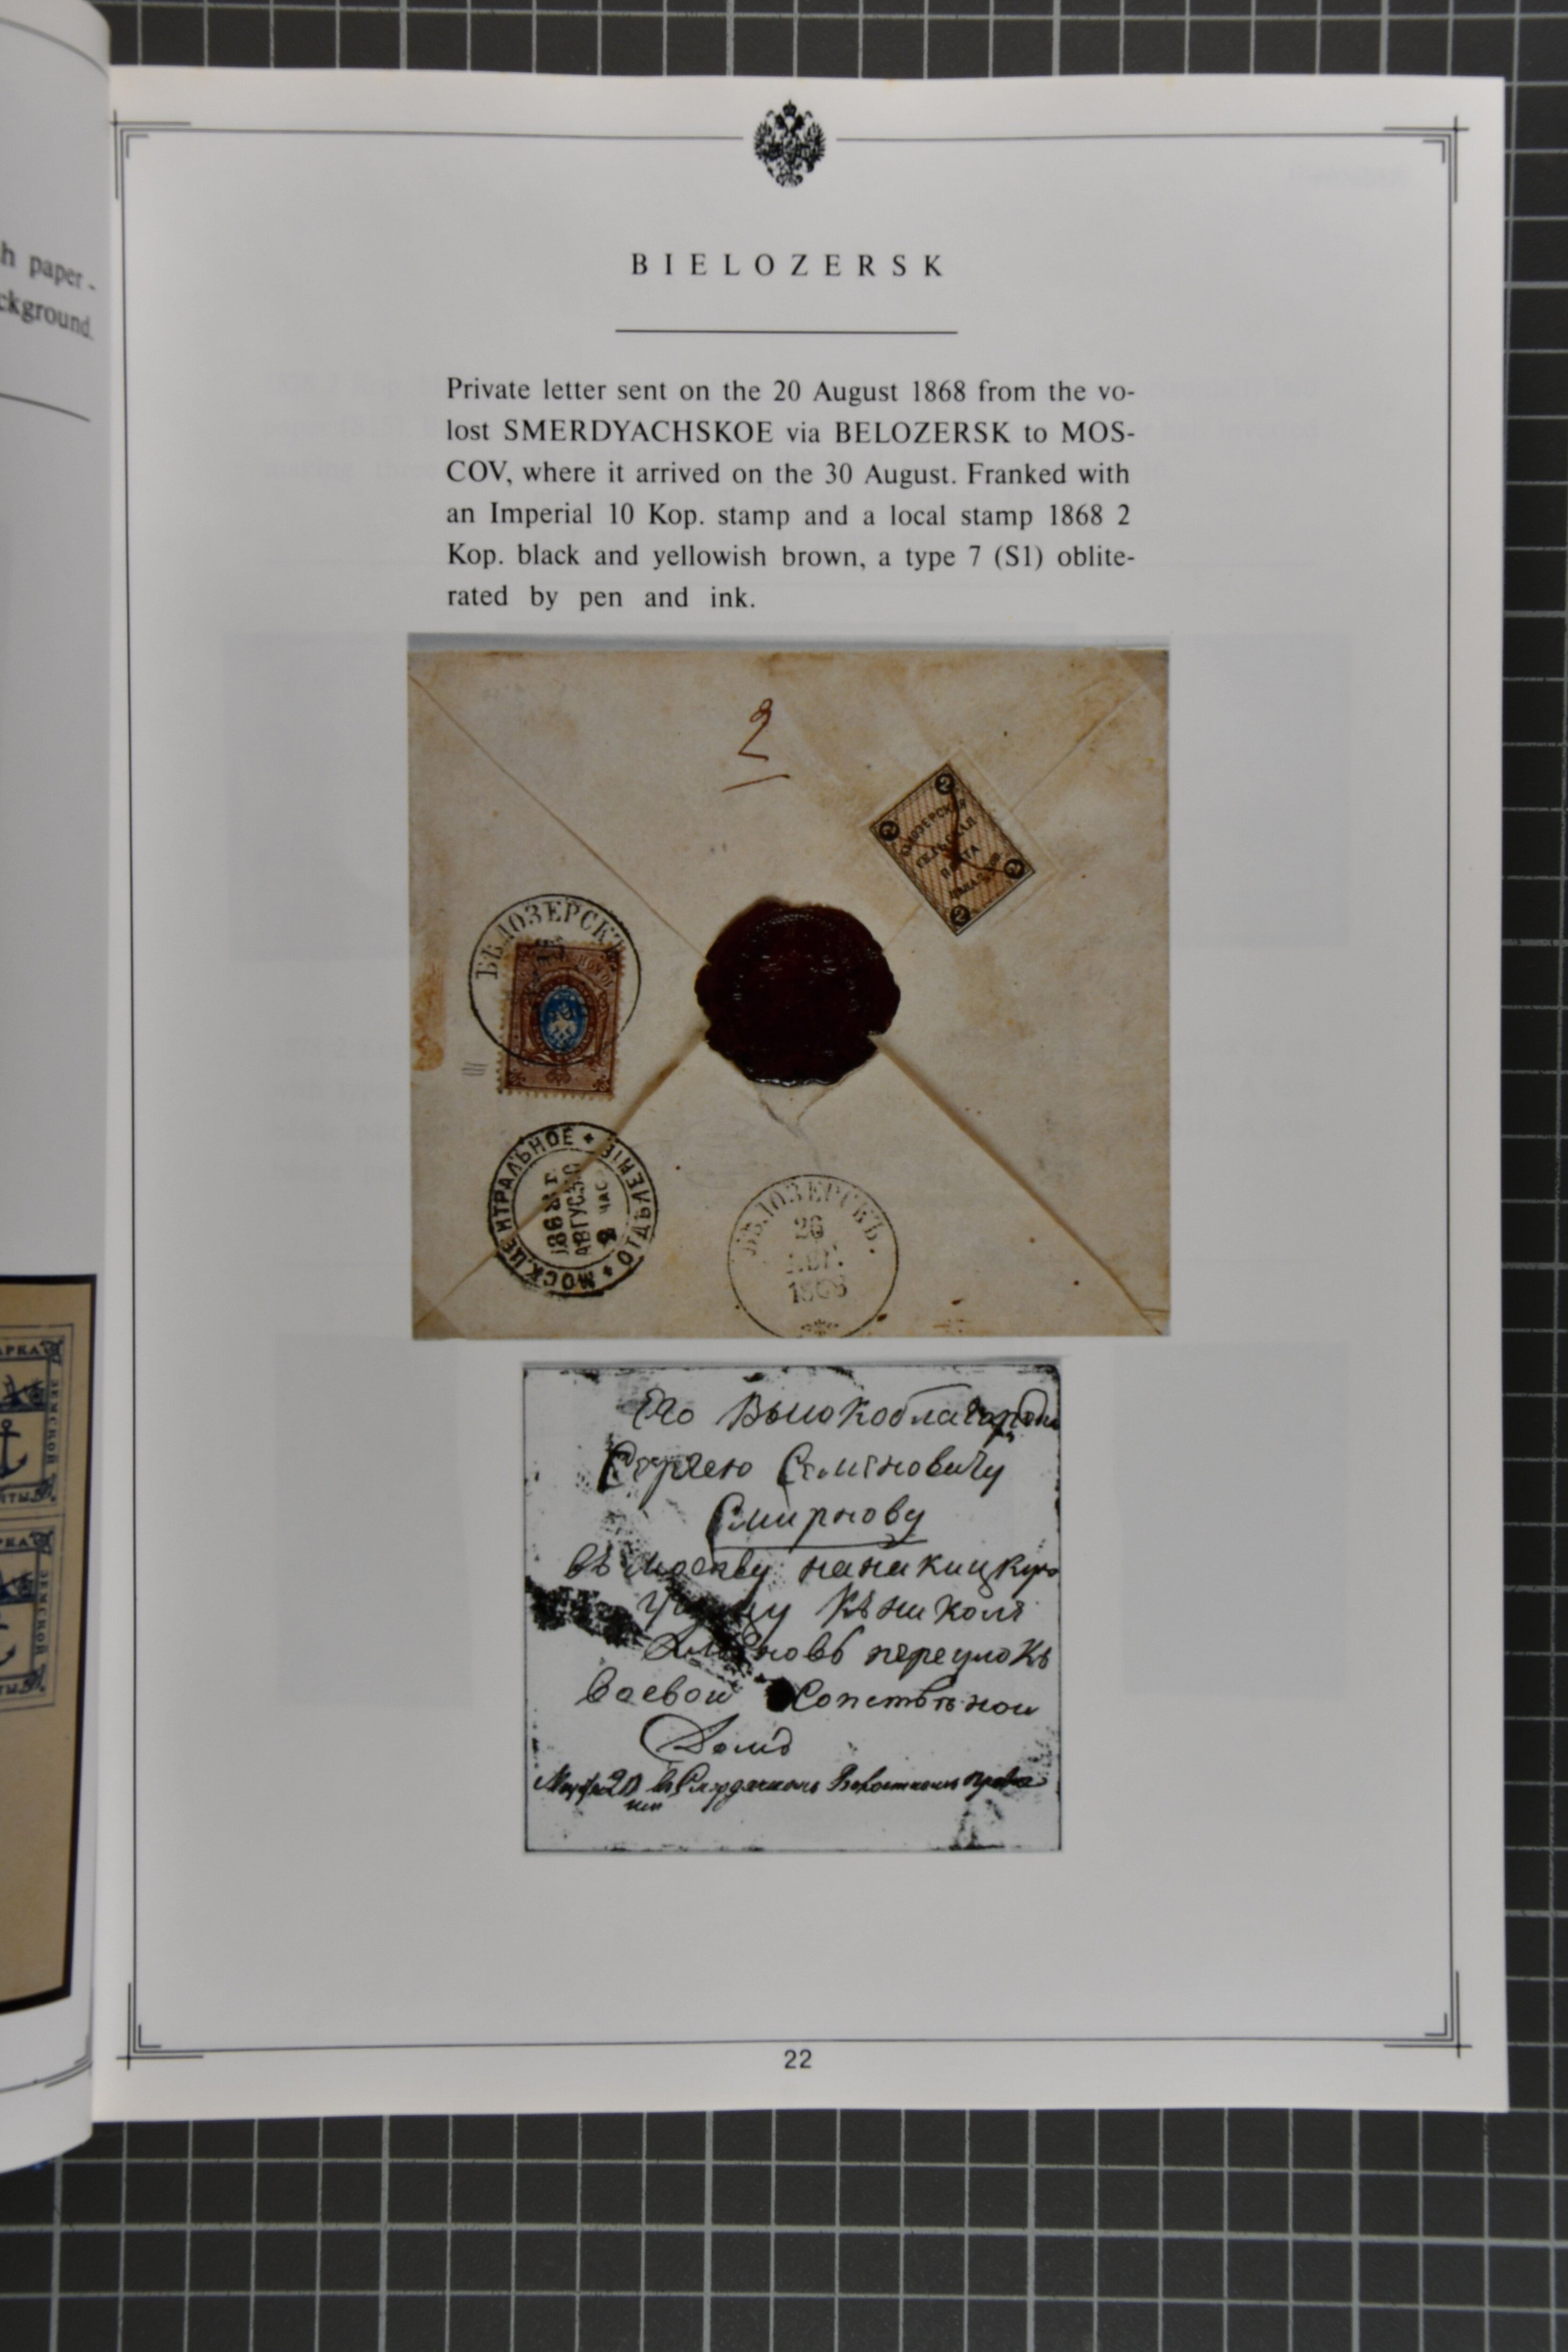 h paper -
ckground.
BIELOZERSK
Private letter sent on the 20 August 1868 from the vo-
lost SMERDYACHSKOE via BELOZERSK to MOS-
COV, where it arrived on the 30 August. Franked with
an Imperial 10 Kop. stamp and a local stamp 1868 2
Kop. black and yellowish brown, a type 7 (S1) oblite-
rated by pen and ink.
2
2
2
2
2
ПОЧТА
БѢЛОЗЕРСКЪ
МОСК. ЦЕНТРАЛЬНОЕ ОТДѢЛЕНІЕ
1868 Г.
АВГУС. 30
ЧАС
БѢЛОЗЕРСКЪ.
26
АВГ.
1868
Его
Сергею Семеновичу
Смирнову
въ Москву
переулокъ
АРКА
ЗЕМСКОЙ
РКА
ЗЕМСКОЙ
22